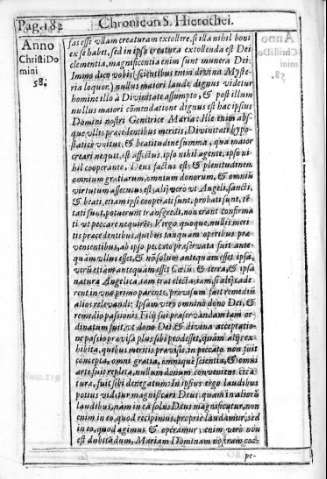 Pag. 182 Chronicon S. Hierothei.
Anno
Christi Do
mini
58.
fas esset ullam creaturam extollere, si illa nihil boni
ex se habet, sed in ipsa creatura extollenda est Dei
clementia, magnificentia enim sunt munera Dei.
Immo dico vobis (scientibus enim divina Myste-
ria loquor) nullus maiori laude dignus videtur
homine illo à Divinitate assumpto, & post illum
nullus maiori commendatione dignus est hac ipsius
Domini nostri Genitrice Maria: Ille enim abs-
que ullis præcedentibus meritis, Divinitati hypo-
statice unitus, & beatitudine summa, qua maior
creari nequit, est affectus, ipso nihil agente, ipso ni-
hil cooperante, Deus factus est, & plenitudinem
omnium gratiarum, omnium donorum, & omnium
virtutum assecutus est; alij vero ut Angeli, sancti,
& beati, etiam ipsi cooperati sunt, probati sunt, te-
tati sunt, potuerunt transgredi, non erant confirma
ti ut peccare nequirent: Virgo quoque, nullis meri-
tis præcedentibus, quibus tanquam operibus præ-
venientibus, ab ipso peccato præservata fuit ante-
quàm ullius esset, & non solum antequam esset ipsa,
verù etiam antequam esset Cælù, & terra, & ipsa
natura Angelica, iam erat electa; tum, si alij exade-
rent in uno primo parente, provisum fuit remedium
alios relevandi: ipsam verò omnino dono Dei, &
remedio passionis Filij sui præservandam tam or-
dinatum fuit, ut dono Dei & divina acceptatio-
ne passio provisa plus sibi prodesset, quàm alijs ex-
hibita, quibus meritis prævisis, in peccato non fuit
concepta, omni gratia, omnique scientia, & omni
arte fuit repleta, nullum donum conveniens crea-
tura, fuit sibi denegatum: In ipsius ergo laudibus
potius videtur magnificari Deus, quàm in aliorù
laudibus, nam in eà solus Deus magnificatur, non
enim in eo, quod recipimus, propriè laudamur, sed
in eo, quod agimus & operamur: enim verò non
est dubitandum, Mariam Dominam nostram coo-
pe-